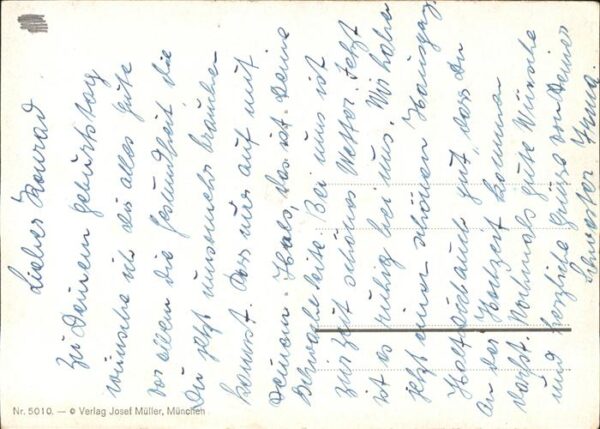 Lieber Konrad
Zu Deinem geburtstag
wünsche ich dir alles gute
vor allem die gesundheit die
Du jetzt umsomehr brauchen
kannst. Dass nur auf mit
Deinem Hals. Das ist Deine
schwache seite. Bei uns ist
zur Zeit schönes Wetter. Jetzt
ist es ruhig bei uns. Wir haben
jetzt einen schönen Hausgang
Halt auch gut, dass Du
an der Hochzeit kommen
darfst. Nochmals gute Wünsche
und herzliche grüsse von Deiner
Schwester Irma.
Nr. 5010. — © Verlag Josef Müller, München